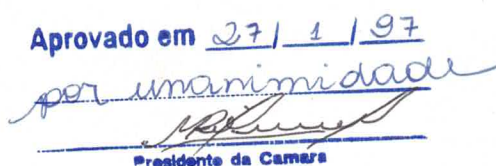 Aprovado em 27/ 1 / 97
por unanimidade
Presidente da Camara